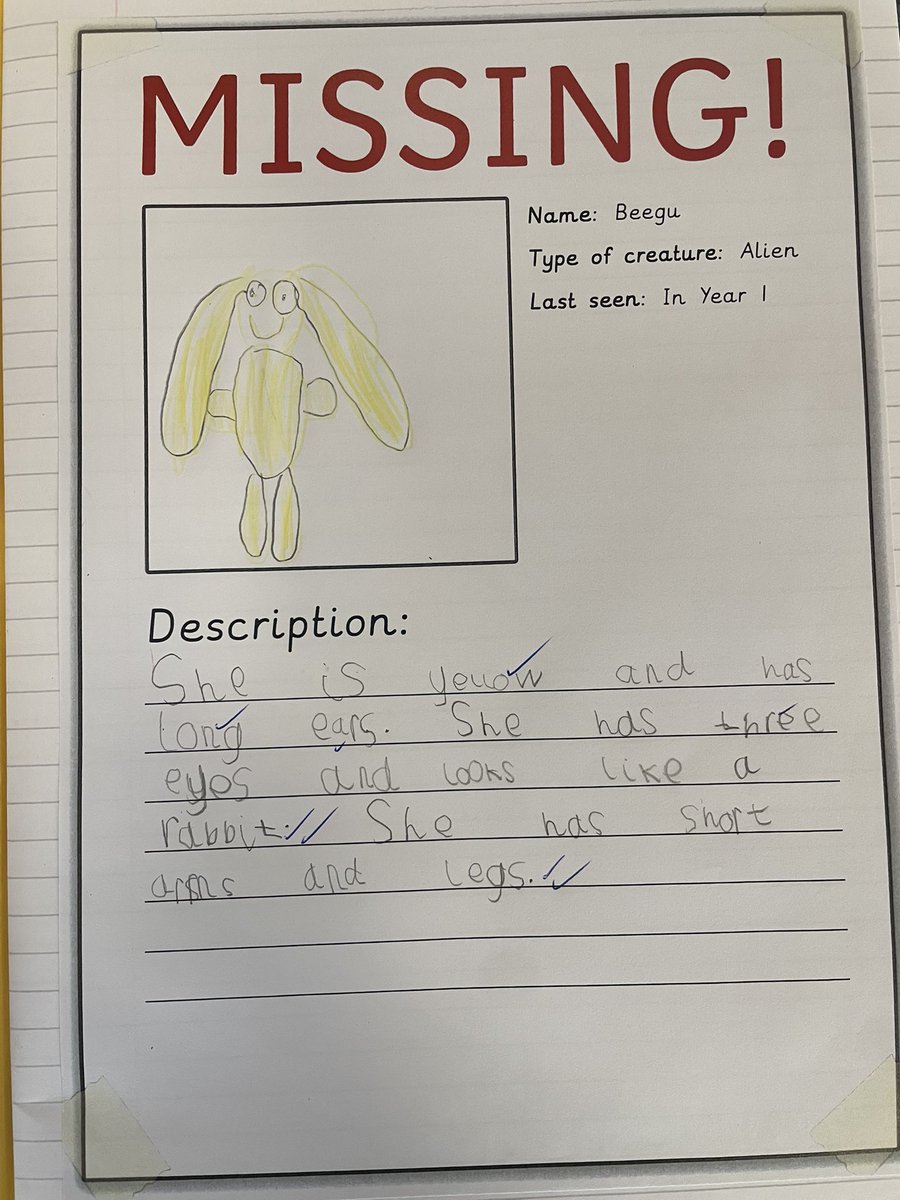 MISSING!
Name: Beegu
Type of creature: Alien
Last seen: In Year 1
Description:
She is yellow and has
long ears. She has three
eyes and looks like a
rabbit. She has short
arms and legs.